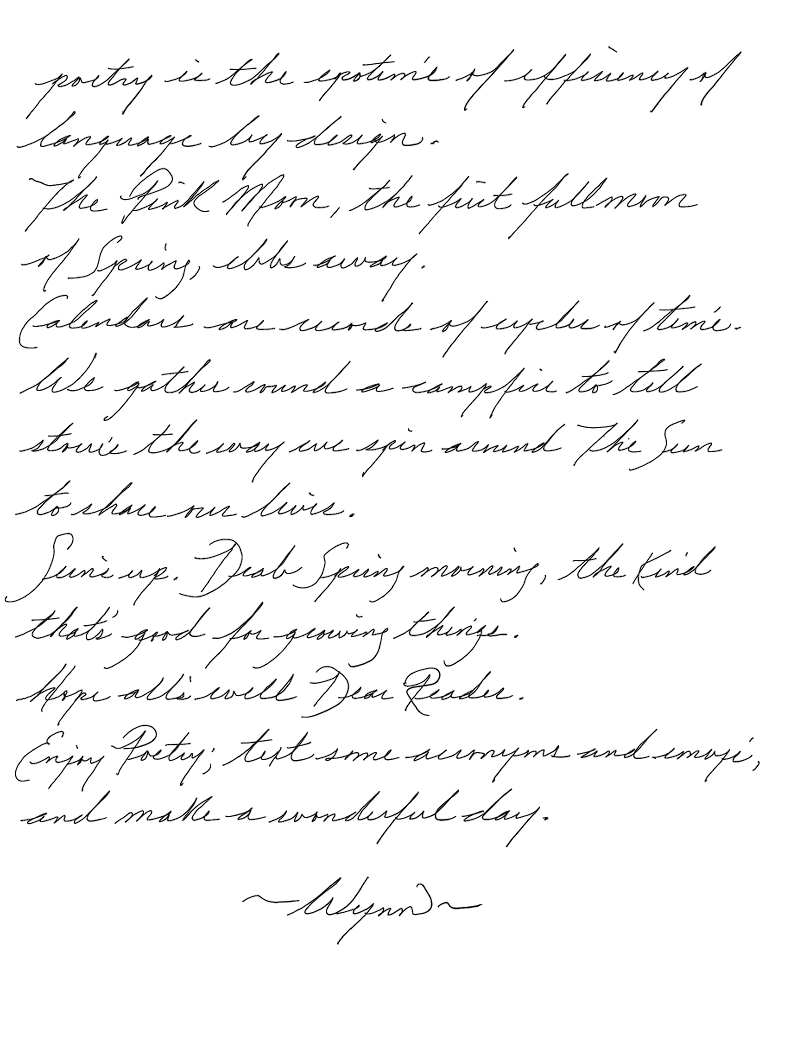 poetry is the epotime of efficiency of
language by design.
The Pink Moon, the first full moon
of Spring, ebbs away.
Calendars are records of cycles of time.
We gather round a campfire to tell
stories the way we spin around The Sun
to share our lives.
Sun's up. Drab Spring morning, the kind
that's good for growing things.
Hope all's well Dear Reader.
Enjoy Poetry; text some acronyms and emoji,
and make a wonderful day.
~Wynn~